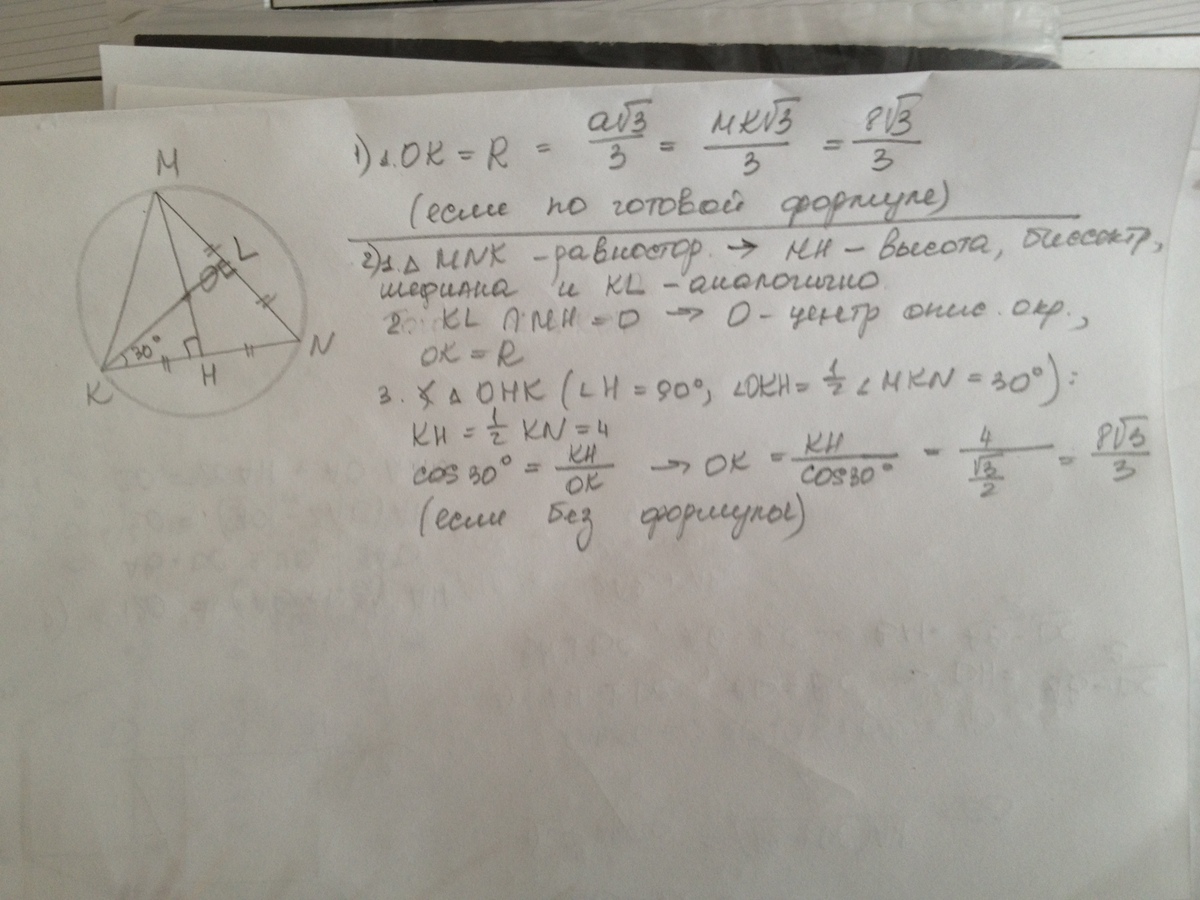 M
L
O
N
H
K
30°
1) 1. OK = R = a√3/3 = MK√3/3 = 8√3/3
(если по готовой формуле)
2) 1. △ MNK - равностор. → MH - высота, биссектр,
медиана и KL - аналогично
2. KL ∩ MH = O → O - центр опис. окр.,
OK = R
3. △ OHK (∠H = 90°, ∠OKH = 1/2 ∠ MKN = 30°):
KH = 1/2 KN = 4
cos 30° = KH/OK → OK = KH/cos 30° = 4/(√3/2) = 8√3/3
(если без формулы)